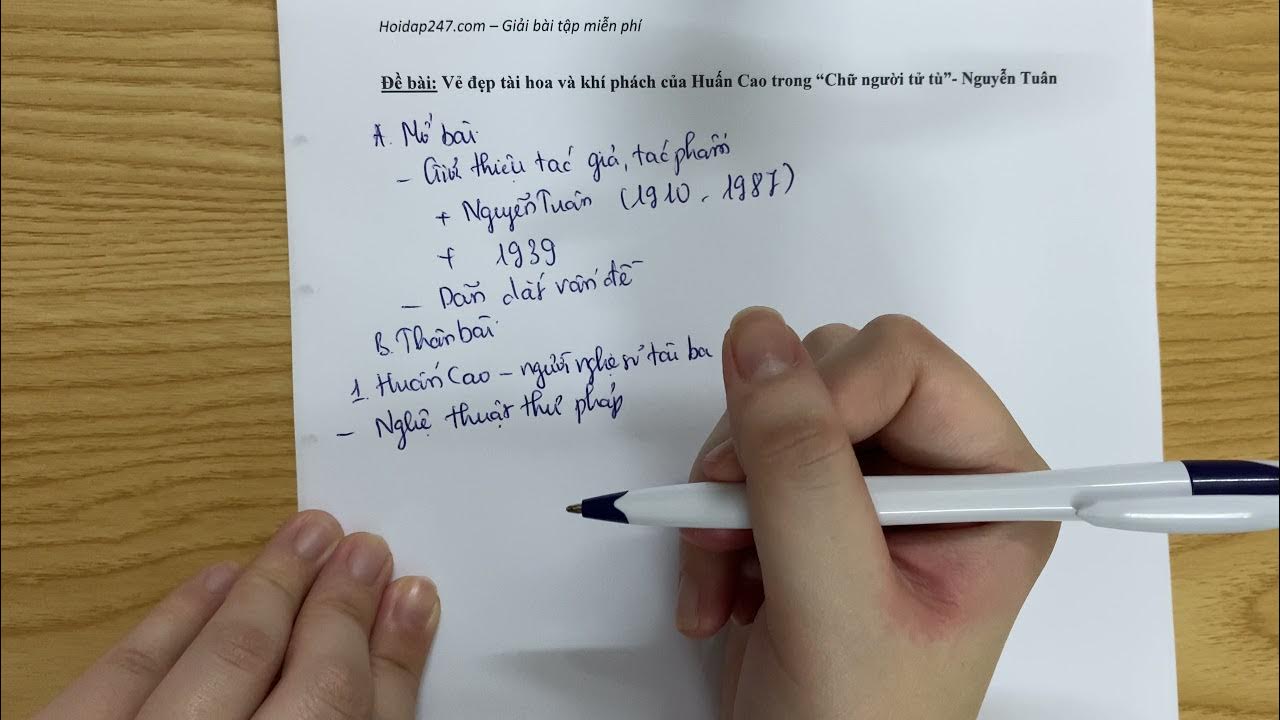 Hoidap247.com – Giải bài tập miễn phí
Đề bài: Vẻ đẹp tài hoa và khí phách của Huấn Cao trong “Chữ người tử tù”- Nguyễn Tuân
A. Mở bài
– Giới thiệu tác giả, tác phẩm
+ Nguyễn Tuân (1910 - 1987)
+ 1939
– Dẫn dắt vấn đề
B. Thân bài
1. Huấn Cao – người nghệ sĩ tài ba
– Nghệ thuật thư pháp